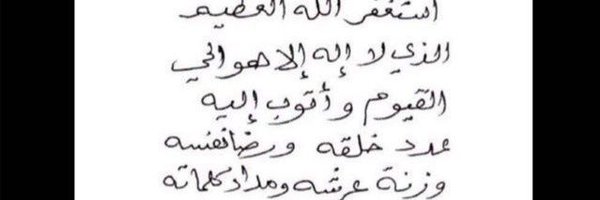 استغفر الله العظيم
الذي لا إله إلا هو الحي
القيوم وأتوب إليه
عدد خلقه ورضا نفسه
وزنة عرشه ومداد كلماته